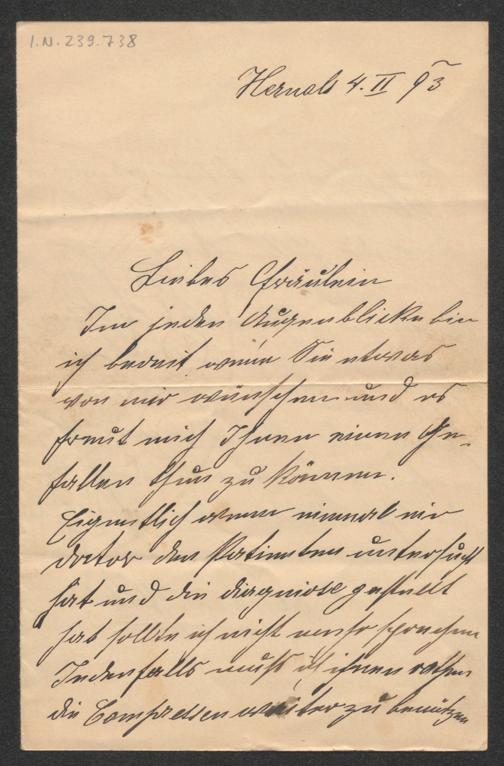 I.N. 239.738
Hernals 4. II 93
Liebes Fräulein
Im jeden Augenblicke bin
ich bereit wenn Sie etwas
von mir wünschen und es
freut mich Ihnen einen Ge-
fallen thun zu können.
Eigentlich wenn einmal ein
Doctor den Patienten untersucht
hat und die diagniose gestellt
hat sollte ich nicht mehr sprechen
Jedenfalls muß ich ihnen rathen
die Compressen weiter zu benützen